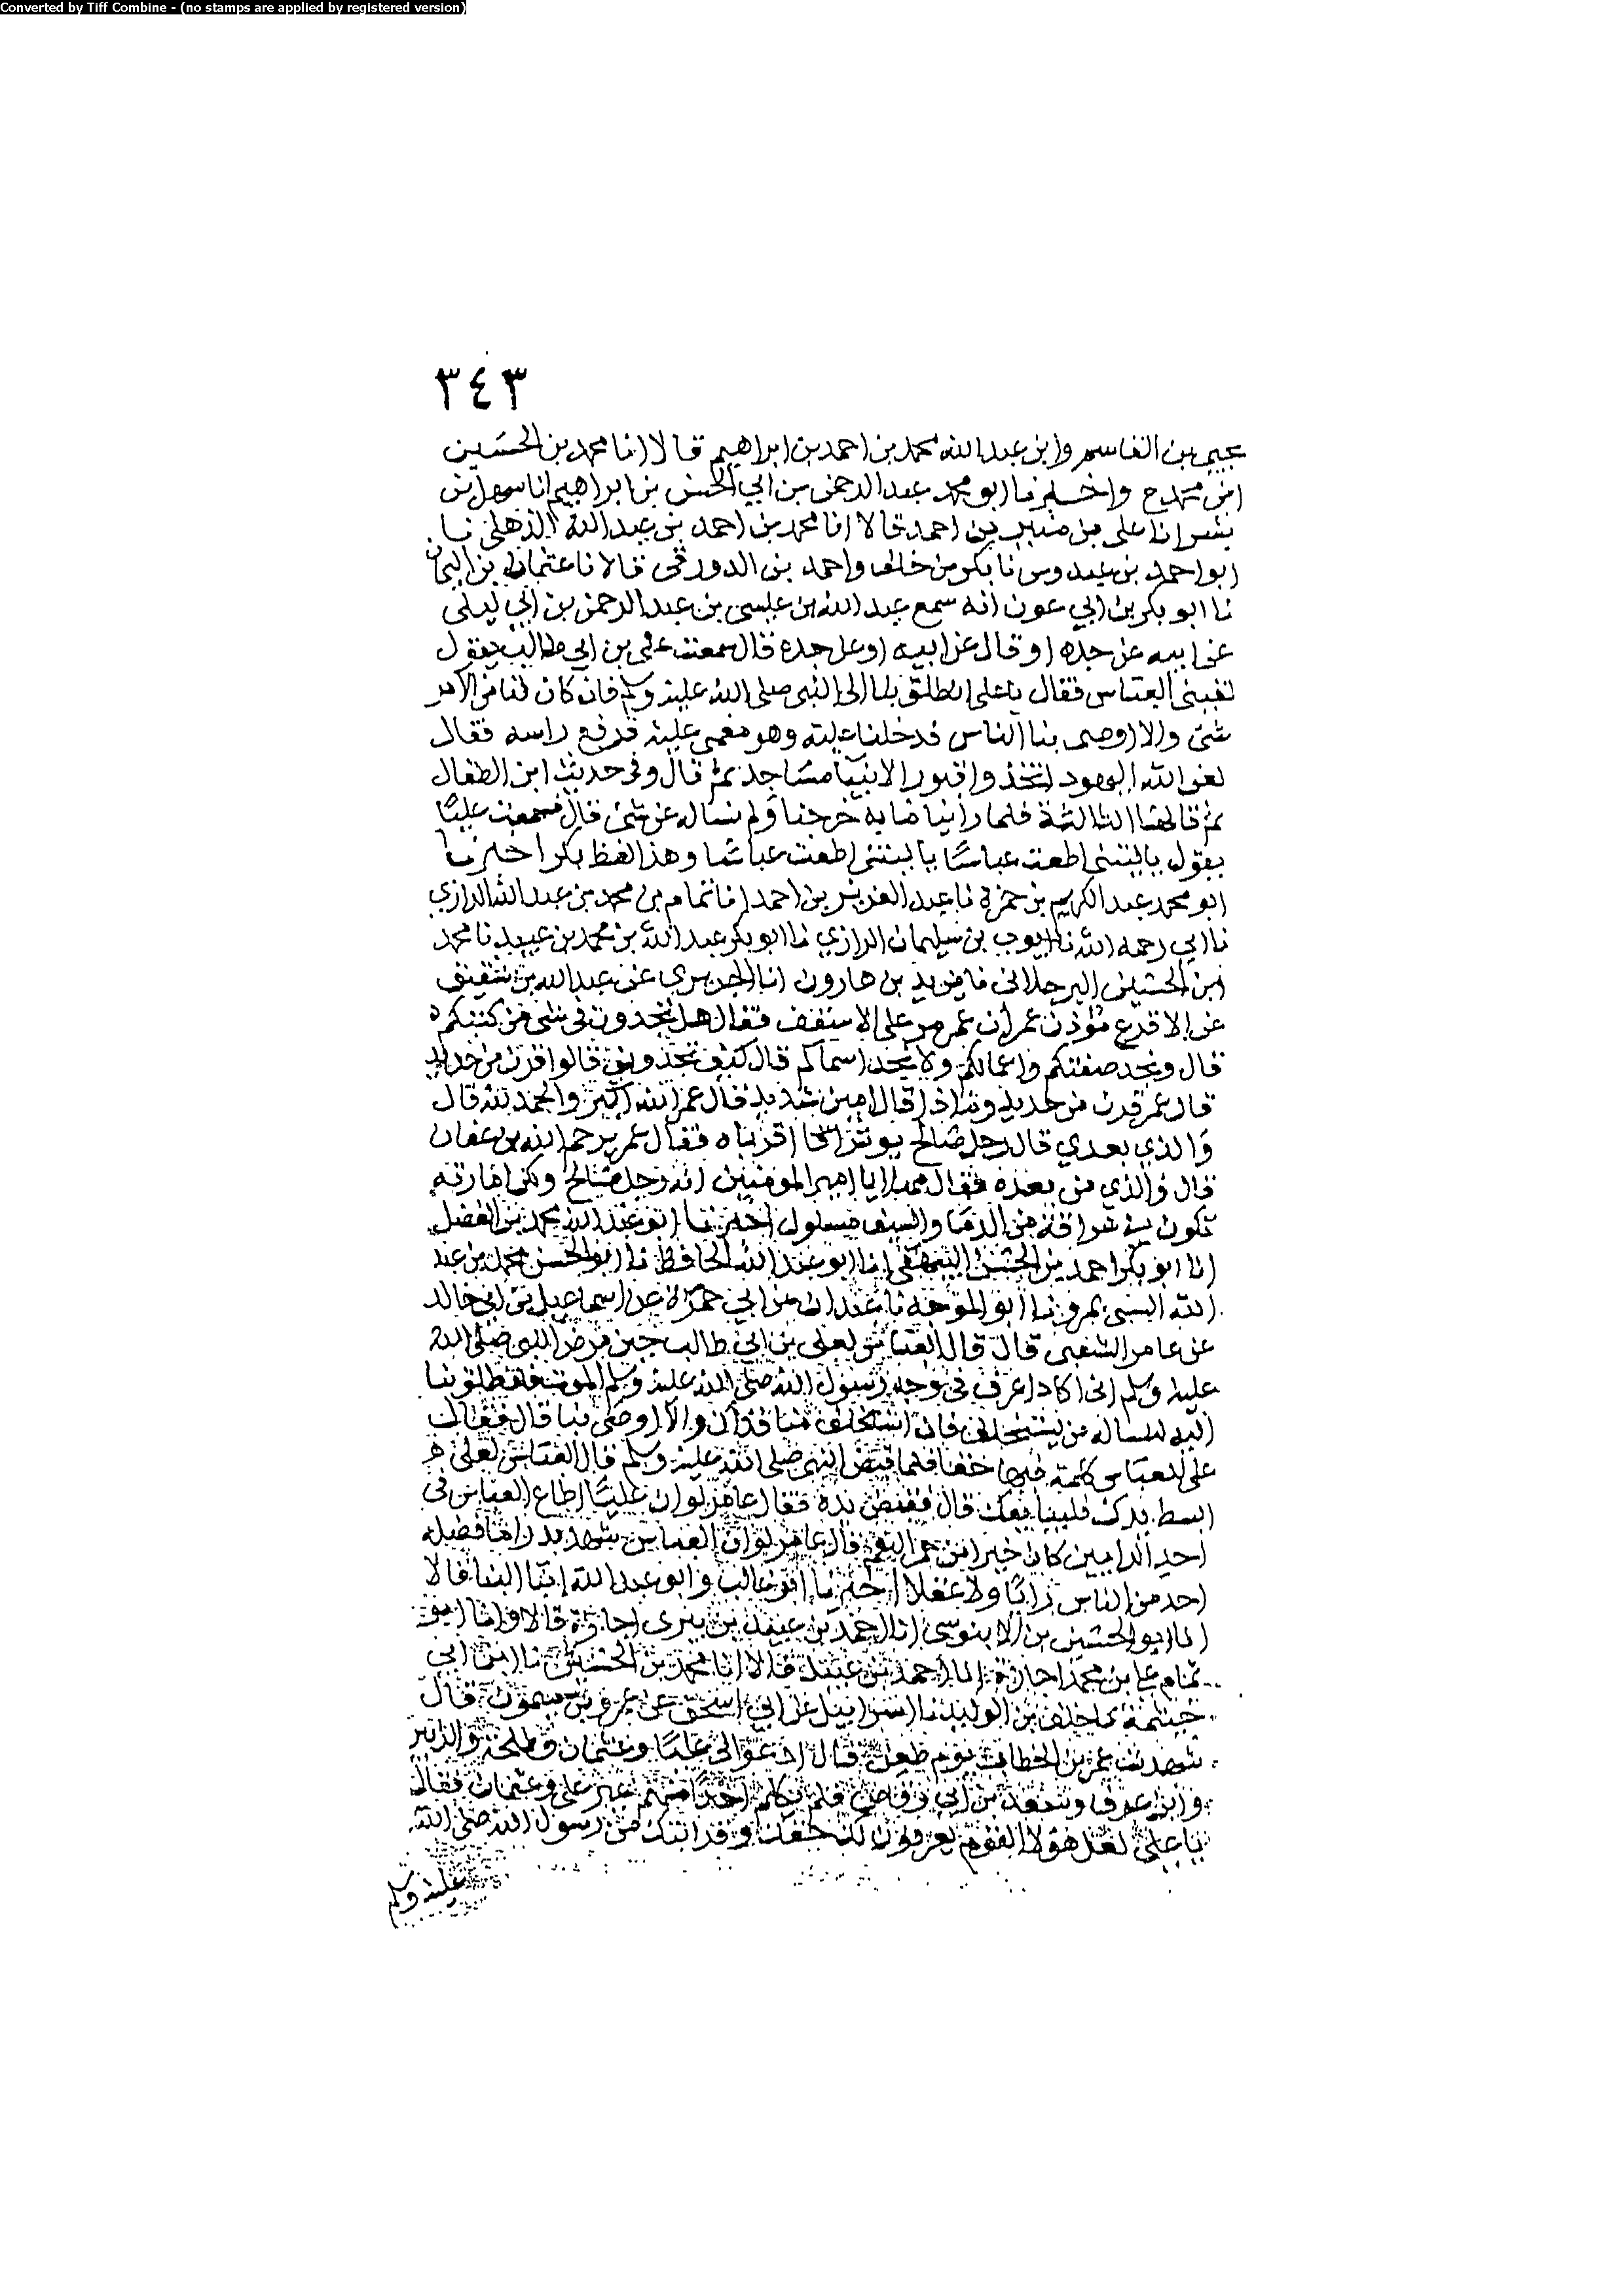 Converted by Tiff Combine - (no stamps are applied by registered version)
٣٤٣
بن القاسم وابن عبد الله محمد بن احمد بن ابراهيم قالا انا محمد بن الحسين
ابن واخبرنا ابو محمد عبد الرحمن بن ابي الحسن بن ابراهيم انا سهل بن
بشر انا علي بن منير بن احمد قالا انا محمد بن احمد بن عبد الله الذهلي نا
ابو احمد بن عبدوس نا بكر بن خلف واحمد بن الدورقي قالا نا عثمان بن اليمان
نا ابو بكر بن ابي عون انه سمع عبد الله بن عيسى بن عبد الرحمن بن ابي ليلى
عن ابيه عن جده او قال عن ابيه او عن جده قال سمعت علي بن ابي طالب يقول
لقيني العباس فقال يا علي انطلق بنا الى النبي صلى الله عليه وسلم فان كان لنا من الامر
شئ والا اوصى بنا الناس فدخلنا عليه وهو مغمى عليه فرفع راسه فقال
لعن الله اليهود اتخذوا قبور الانبيا مساجد ثم قال وفي حديث ابن الطفال
ثم قالها الثالثة فلما راينا ما به خرجنا ولم نساله عن شئ قال فسمعت عليا
يقول ياليتني اطعت عباسا ياليتني اطعت عباسا وهذا لفظ بكر اخبرنا
ابو محمد عبد الكريم بن حمزة نا عبد العزيز بن احمد انا تمام بن محمد بن عبد الله الرازي
نا ابي رحمه الله نا ايوب بن سليمان الرازي نا ابو بكر عبد الله بن محمد بن عبيد نا محمد
ابن الحسين البرجلاني نا يزيد بن هارون انا الجريري عن عبد الله بن شقيق
عن الاقرع مؤذن عمر ان عمر مر على الاسقف فقال هل تجدوني في شئ من كتبكم
قال ونجد صفتكم واعمالكم ولا نجد اسماكم قال كيف تجدوني قالوا قرن من حديد
قال عمر قرن من حديد وماذا قال امير شديد قال عمر الله اكبر والحمد لله قال
والذي بعدي قال رجل صالح يوثر اقرباه فقال عمر يرحم الله بن عفان
قال والذي من بعده فقال مهلا يا امير المومنين انه رجل صالح ولكن امارته
تكون في هراقة من الدما والسيف مسلول اخبرنا ابو عبد الله محمد بن الفضل
انا ابو بكر احمد بن الحسين البيهقي انا ابو عبد الله الحافظ نا ابو الحسن محمد بن عبد
الله السني بمرو نا ابو الموجه نا عبدان عن ابي حمزة عن اسماعيل بن ابي خالد
عن عامر الشعبي قال قال العباس لعلي بن ابي طالب حين مرض النبي صلى الله
عليه وسلم اني اكاد اعرف في وجه رسول الله صلى الله عليه وسلم الموت فانطلق بنا
اليه لنساله من يستخلف فان استخلف منا فذاك والا اوصى بنا قال فقال
علي للعباس كلمة فيها جفا فلما قبض النبي صلى الله عليه وسلم قال العباس لعلي
ابسط يدك فلنبايعك قال فقبض يده فقال عامر لو ان عليا اطاع العباس في
احد الرايين كان خيرا من حمر النعم قال عامر لو ان العباس شهد بدرا ما فضله
احد من الناس رايا ولا عقلا اخبرنا ابو غالب وابو عبد الله ابنا البنا قالا
انا ابو الحسين بن الابنوسي انا احمد بن عبيد بن بيري اجازة قالا وانا ابو
تمام علي بن محمد اجازة انا احمد بن عبيد قالا انا محمد بن الحسين نا ابن ابي
خيثمة نا خلف بن الوليد نا اسرائيل عن ابي اسحق عن عمرو بن ميمون قال
شهدت عمر بن الخطاب يوم طعن قال ادعوا لي عليا وعثمان وطلحة والزبير
وابن عوف وسعد بن ابي وقاص فلم يكلم احدا منهم غير علي وعثمان فقال
يا علي لعل هولا القوم يعرفون لك حقك وقرابتك من رسول الله صلى الله
عليه وسلم